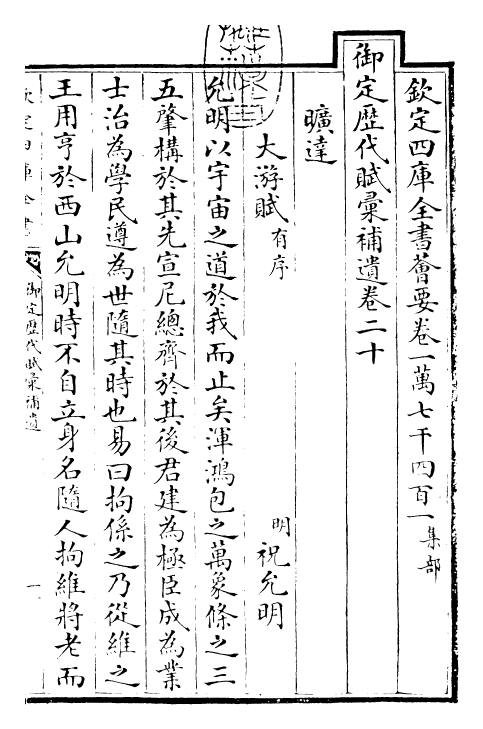 欽定四庫全書薈要卷一萬七千四百一集部
御定歷代賦彙補遺卷二十
曠達
大游賦有序 明祝允明
允明以宇宙之道於我而止矣渾鴻包之萬象條之三
五肇構於其先宣尼總齊於其後君建為極臣成為業
士治為學民遵為世隨其時也易曰拘係之乃從維之
王用亨於西山允明時不自立身名隨人拘維將老而
欽定四庫全書
御定歷代賦彙補遺
一